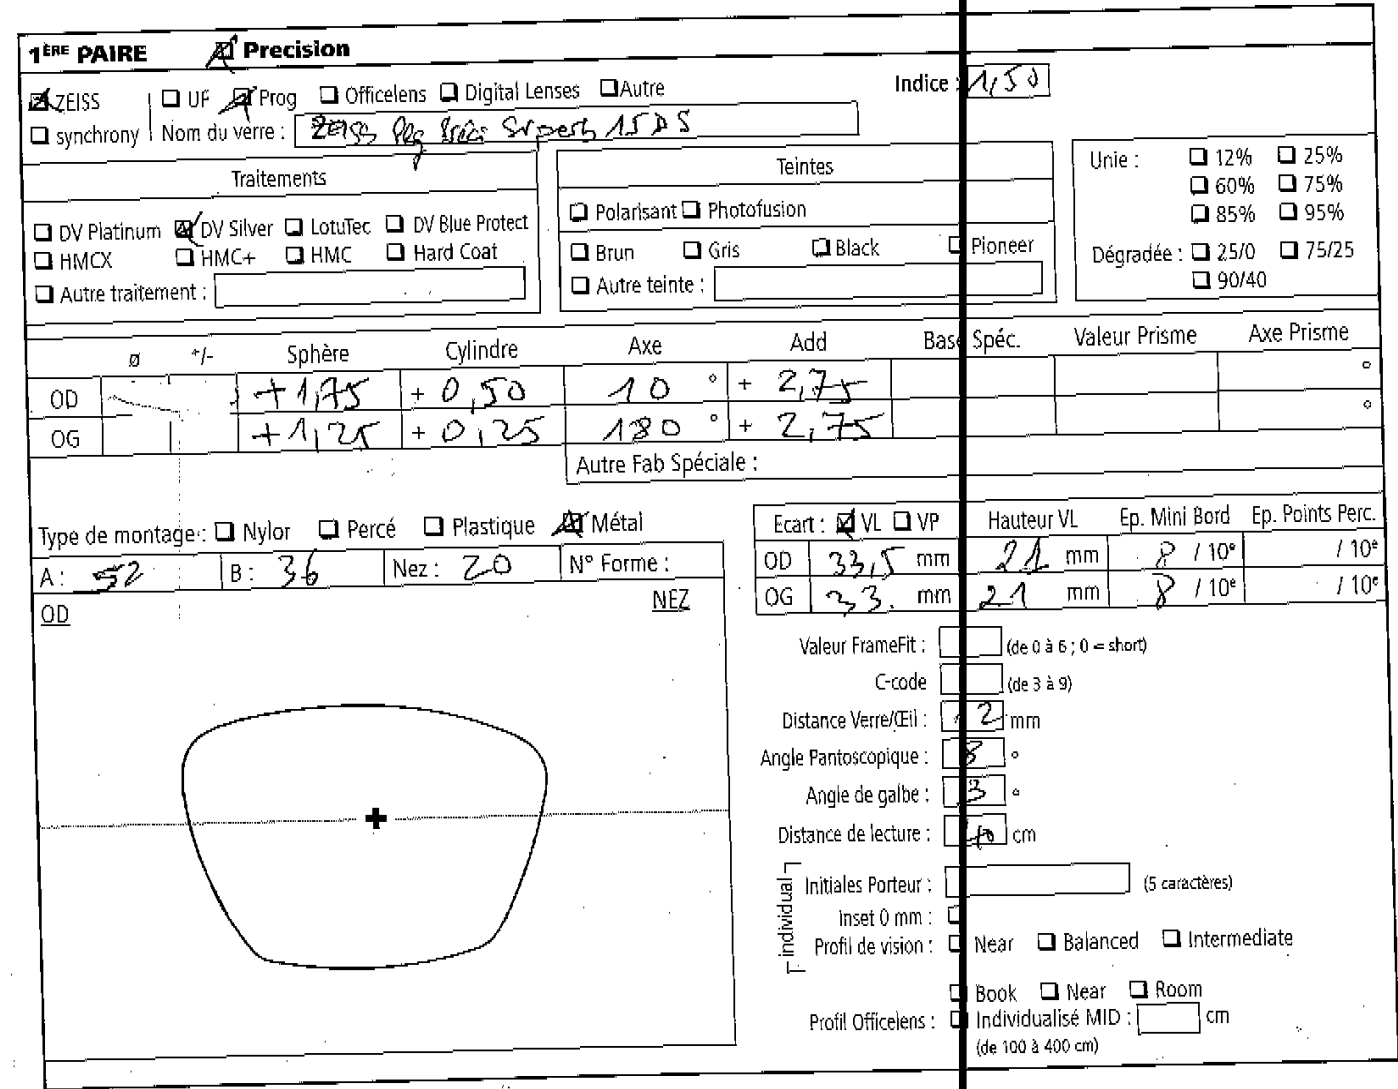 1ÈRE PAIRE ☒ Precision
☒ ZEISS ☐ UF ☒ Prog ☐ Officelens ☐ Digital Lenses ☐ Autre Indice : 1,50
☐ synchrony Nom du verre : Zeiss Superb 15 DS
Traitements
☐ DV Platinum ☒ DV Silver ☐ LotuTec ☐ DV Blue Protect
☐ HMCX ☐ HMC+ ☐ HMC ☐ Hard Coat
☐ Autre traitement :
Teintes
☐ Polarisant ☐ Photofusion
☐ Brun ☐ Gris ☐ Black ☐ Pioneer
☐ Autre teinte :
Unie : ☐ 12% ☐ 25%
☐ 60% ☐ 75%
☐ 85% ☐ 95%
Dégradée : ☐ 25/0 ☐ 75/25
☐ 90/40
ø +/- Sphère Cylindre Axe Add Base Spéc. Valeur Prisme Axe Prisme
OD +1,75 + 0,50 10 ° + 2,75 °
OG +1,25 + 0,25 180 ° + 2,75 °
Autre Fab Spéciale :
Type de montage : ☐ Nylor ☐ Percé ☐ Plastique ☒ Métal
A : 52 B : 36 Nez : 20 N° Forme :
OD NEZ
Ecart : ☒ VL ☐ VP Hauteur VL Ep. Mini Bord Ep. Points Perc.
OD 33,5 mm 21 mm 8 / 10e / 10e
OG 33. mm 21 mm 8 / 10e / 10e
Valeur FrameFit : (de 0 à 6 ; 0 = short)
C-code (de 3 à 9)
Distance Verre/Œil : 12 mm
Angle Pantoscopique : 8 °
Angle de galbe : 3 °
Distance de lecture : 40 cm
individual
Initiales Porteur : (5 caractères)
Inset 0 mm : ☐
Profil de vision : ☐ Near ☐ Balanced ☐ Intermediate
☐ Book ☐ Near ☐ Room
Profil Officelens : ☐ Individualisé MID : cm
(de 100 à 400 cm)